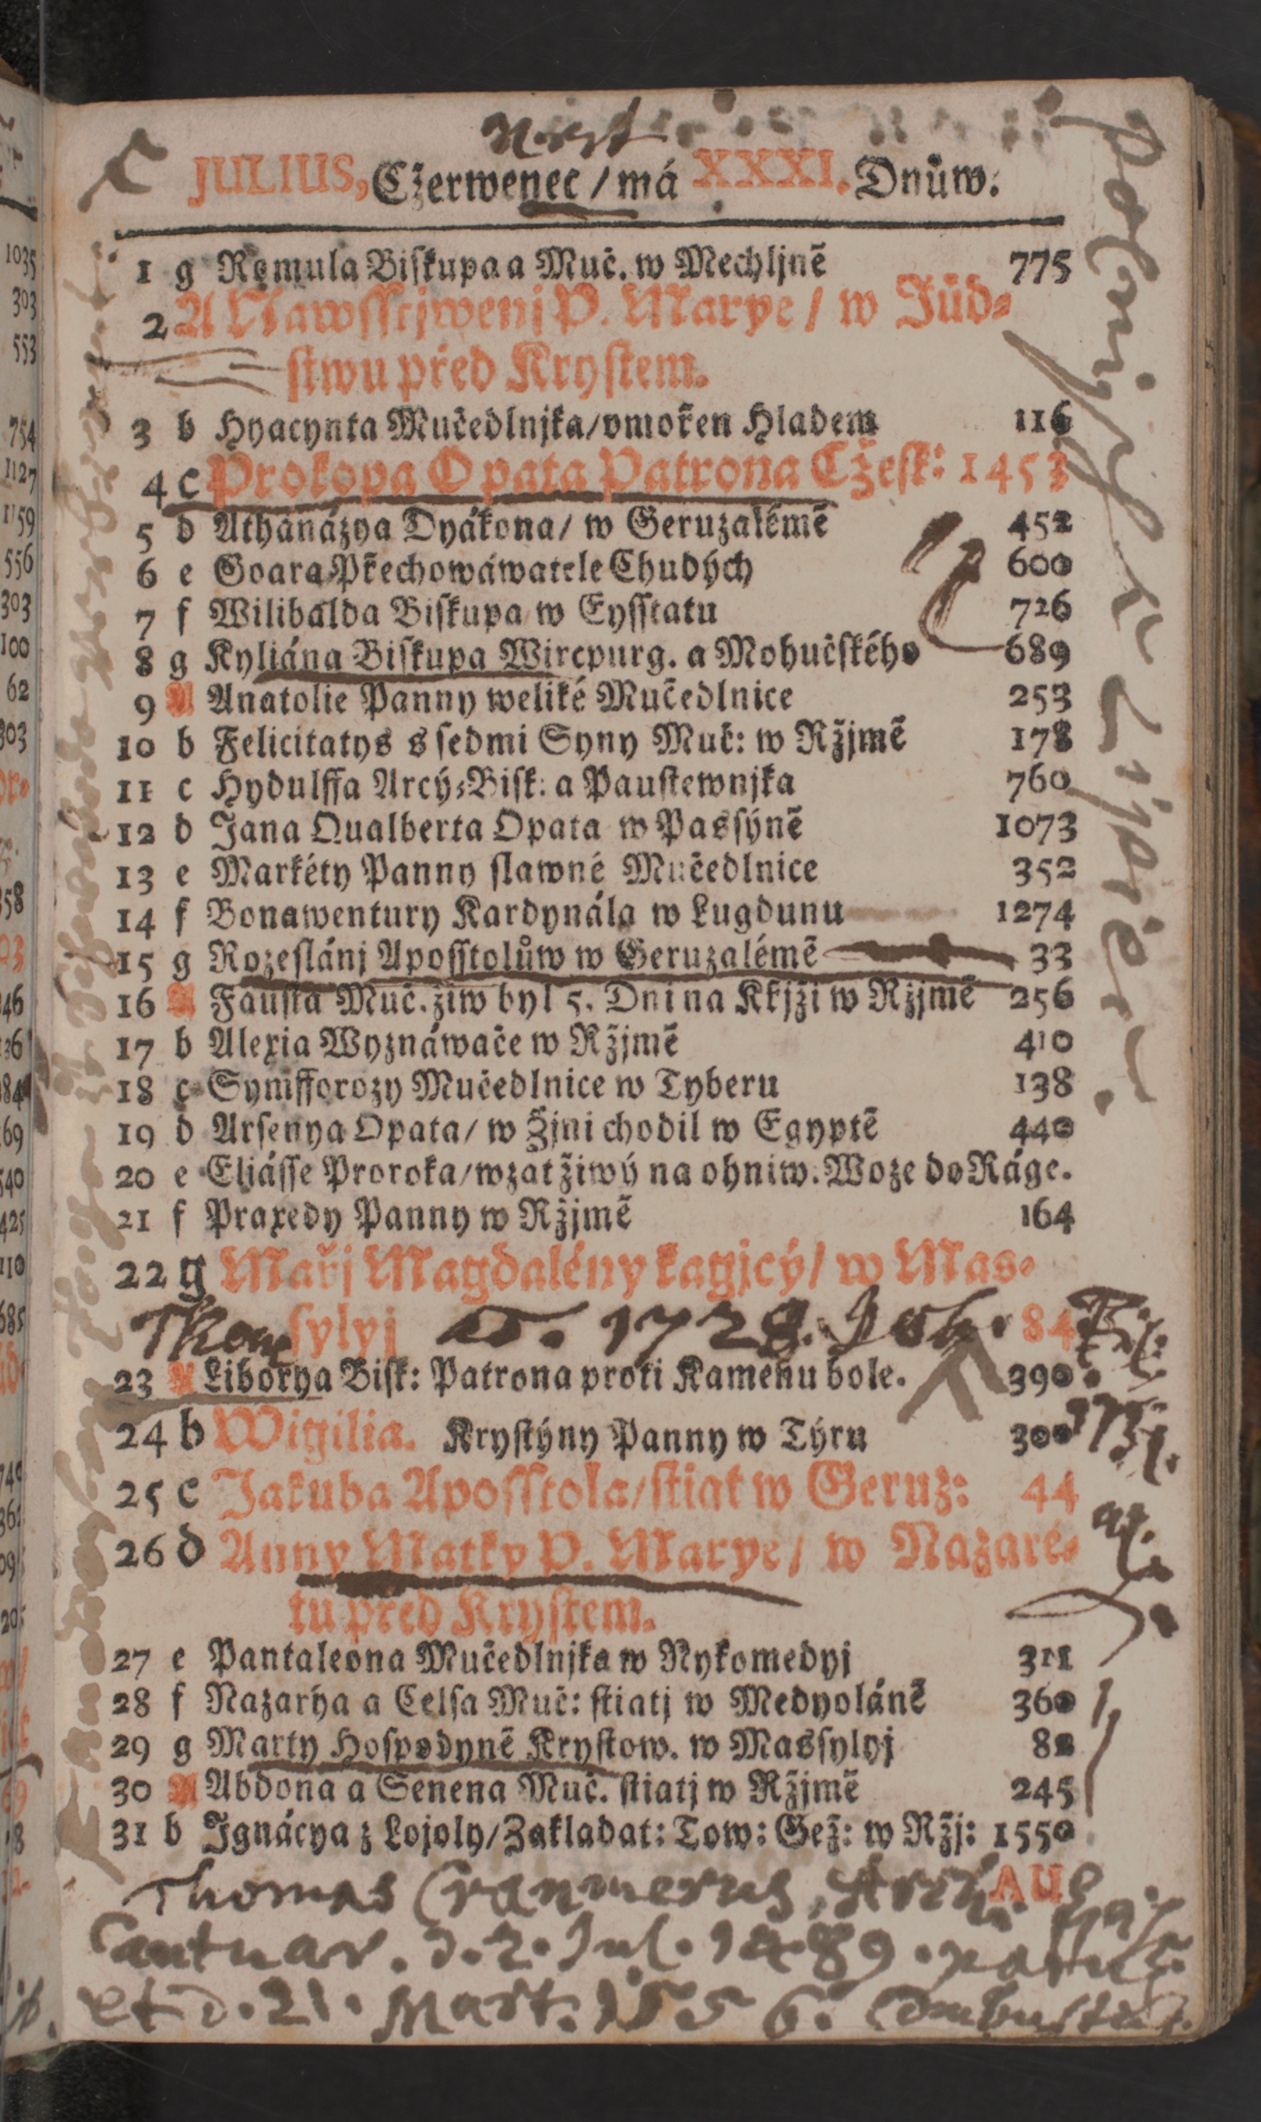 JULIUS, Cžerwenec / má XXXI. Dnůw.
1 g Romula Biſkupa a Muč. w Mechljně 775
2 A Nawſſtjwenj P. Marye / w Jůd⸗
ſtwu před Kryſtem.
3 b Hyacynta Mučedlnjka / vmořen Hladem 116
4 c Prokopa Opata Patrona Cžeſk: 1453
5 d Athanázya Dyákona / w Geruzalémě 452
6 e Goara Přechowáwatele Chudých 600
7 f Wilibalda Biſkupa w Eyſſtatu 726
8 g Kyliána Biſkupa Wircpurg. a Mohučſkého 689
9 A Anatolie Panny weliké Mučedlnice 253
10 b Felicitatys s ſedmi Syny Muč: w Ržjmě 178
11 c Hydulffa Arcý⸗Biſk: a Pauſtewnjka 760
12 d Jana Qualberta Opata w Paſsýně 1073
13 e Markéty Panny ſlawné Mučedlnice 352
14 f Bonawentury Kardynála w Lugdunu 1274
15 g Rozeſlánj Apoſſtolůw w Geruzalémě 33
16 A Fauſta Muč. žiw byl 5. Dni na Křjži w Ržjmě 256
17 b Alexia Wyznáwače w Ržjmě 410
18 c Symfforozy Mučedlnice w Tyberu 138
19 d Arſenya Opata / w Žjni chodil w Egyptě 440
20 e Eliáſſe Proroka / wzat žiwý na ohniw. Woze do Ráge.
21 f Praxedy Panny w Ržjmě 164
22 g Mařj Magdalény kagjcý / w Mas⸗
ſylyj 84
A. 1728. Joh.
23 A Liborya Biſk: Patrona proti Kamenu bole. 390
24 b Wigilia. Kryſtýny Panny w Týru 300
25 c Jakuba Apoſſtola / ſtiat w Geruz: 44
26 d Anny Matky P. Marye / w Nazaré⸗
tu před Kryſtem.
27 e Pantaleona Mučedlnjka w Nykomedyj 311
28 f Nazarya a Celſa Muč: ſtiatj w Medyoláně 360
29 g Marty Hoſpodyně Kryſtow. w Maſsylyj 82
30 A Abdona a Senena Muč. ſtiatj w Ržjmě 245
31 b Jgnácya z Lojoly / Zakladat: Tow: Gež: w Ržj: 1550
AU
Thomas Cranmerus, Arch.
Cantuar. d. 2. Jul. 1489. natus
et d. 21. Mart. 1556. Combustus.